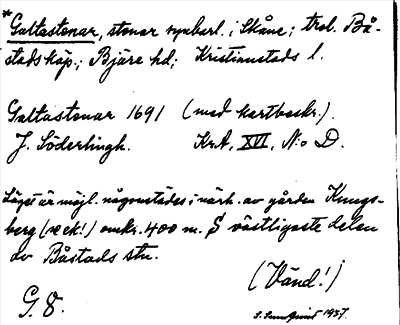 *Galtastenar, stenar synbarl. i Skåne; trol. Bå-
stads köp.; Bjäre hd; Kristianstads l.
Galtastenar 1691 (med kartbeskr.).
J. Söderlingh. Kr.A, XVI, N:o D.
Läget är möjl. någonstädes i närh. av gården Kungs-
berg (ek!) omkr. 400 m. S västligaste delen
av Båstads stn.
(Vänd!)
G. 8. S. Sundqvist 1937.